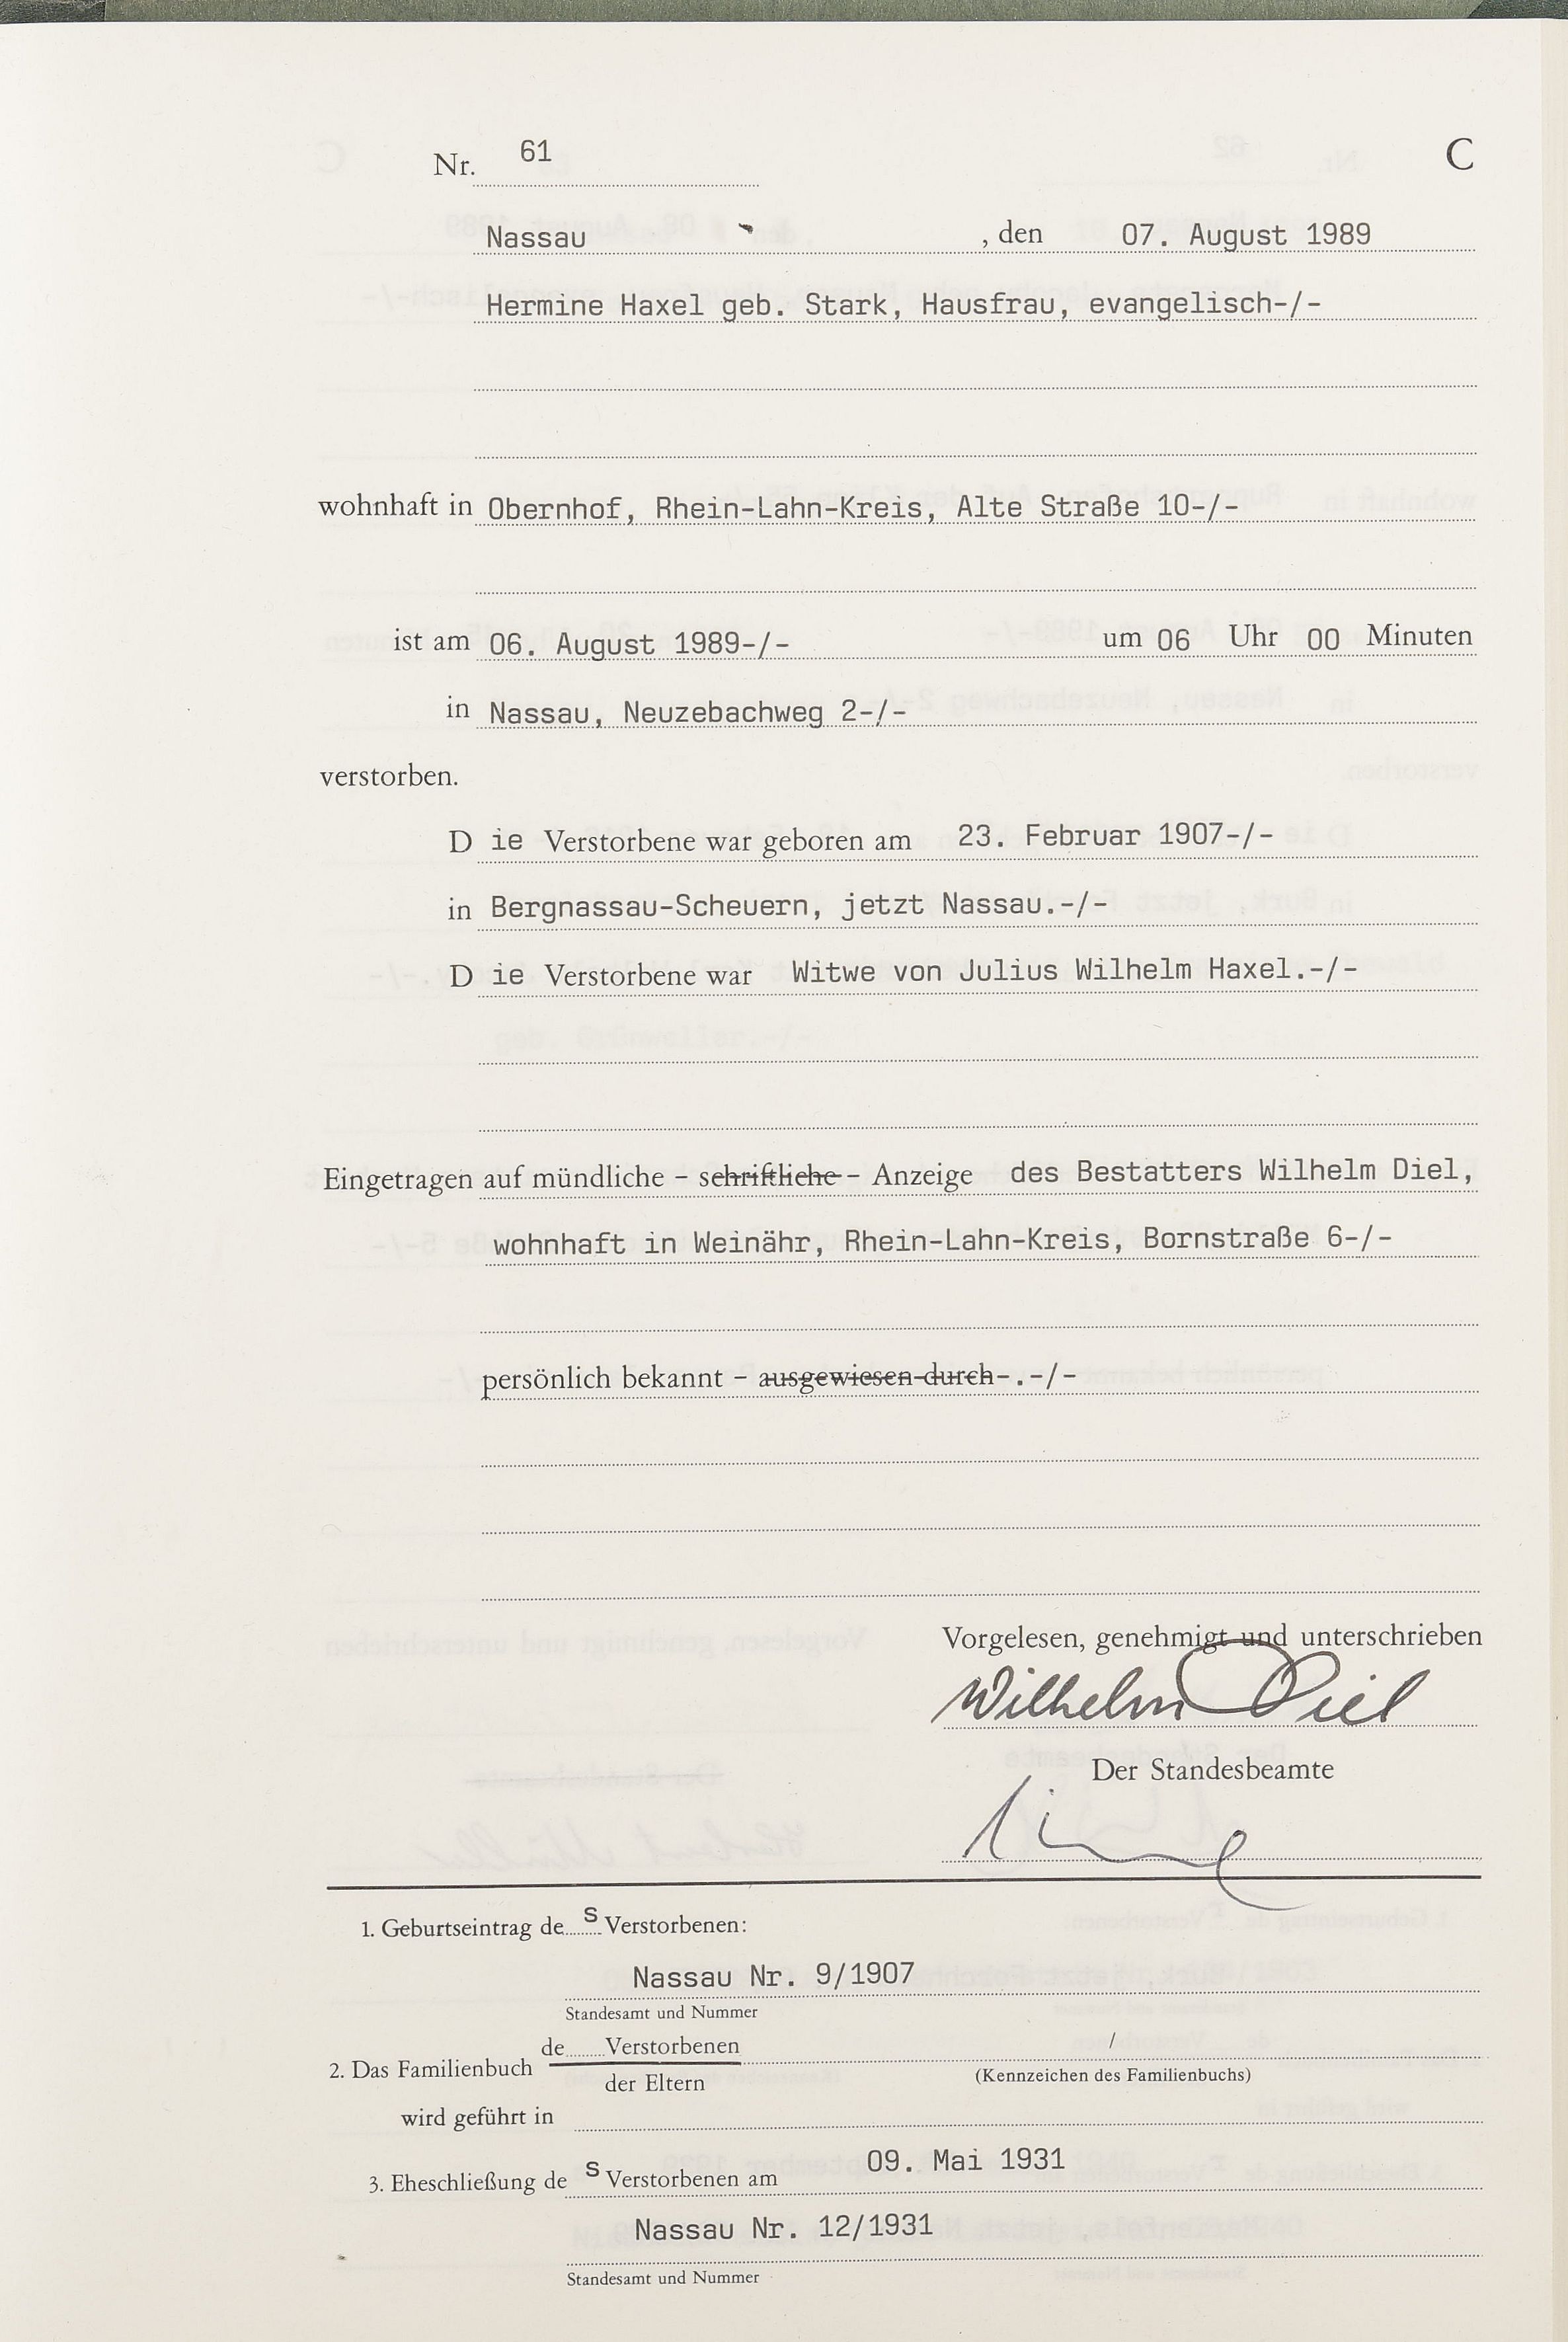 Nr. 61 C
Nassau , den 07. August 1989
Hermine Haxel geb. Stark, Hausfrau, evangelisch-/-
wohnhaft in Obernhof, Rhein-Lahn-Kreis, Alte Straße 10-/-
ist am 06. August 1989-/- um 06 Uhr 00 Minuten
in Nassau, Neuzebachweg 2-/-
verstorben.
D ie Verstorbene war geboren am 23. Februar 1907-/-
in Bergnassau-Scheuern, jetzt Nassau.-/-
D ie Verstorbene war Witwe von Julius Wilhelm Haxel.-/-
Eingetragen auf mündliche - schriftliche - Anzeige des Bestatters Wilhelm Diel,
wohnhaft in Weinähr, Rhein-Lahn-Kreis, Bornstraße 6-/-
persönlich bekannt - ausgewiesen durch-.-/-
Vorgelesen, genehmigt und unterschrieben
Wilhelm Diel
Der Standesbeamte
1. Geburtseintrag de s Verstorbenen:
Nassau Nr. 9/1907
Standesamt und Nummer
de Verstorbenen /
2. Das Familienbuch
der Eltern (Kennzeichen des Familienbuchs)
wird geführt in
3. Eheschließung de s Verstorbenen am 09. Mai 1931
Nassau Nr. 12/1931
Standesamt und Nummer